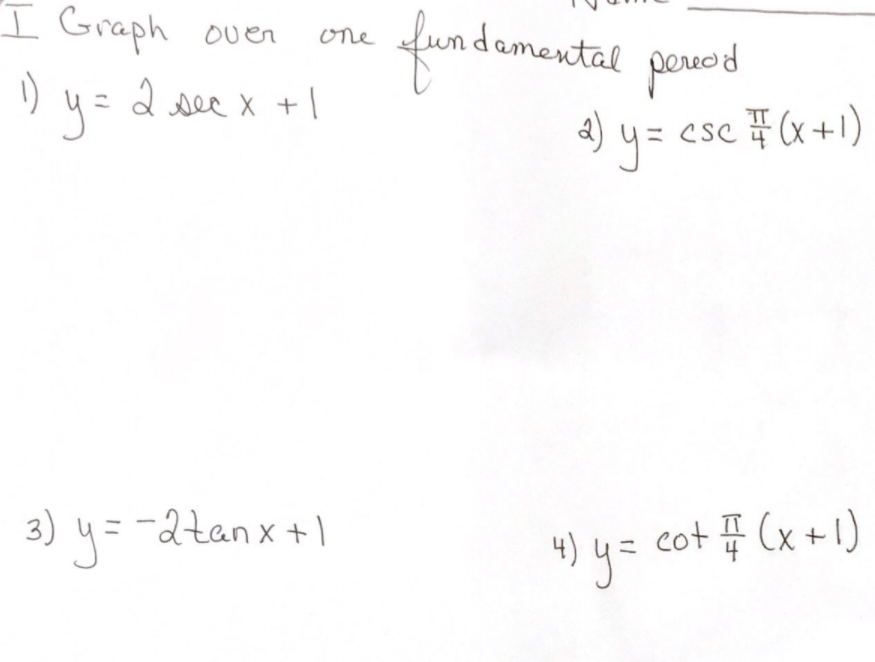 I Graph over one fundamental period
1) y = 2 sec x + 1
2) y = csc π/4 (x+1)
3) y = -2tan x + 1
4) y = cot π/4 (x+1)